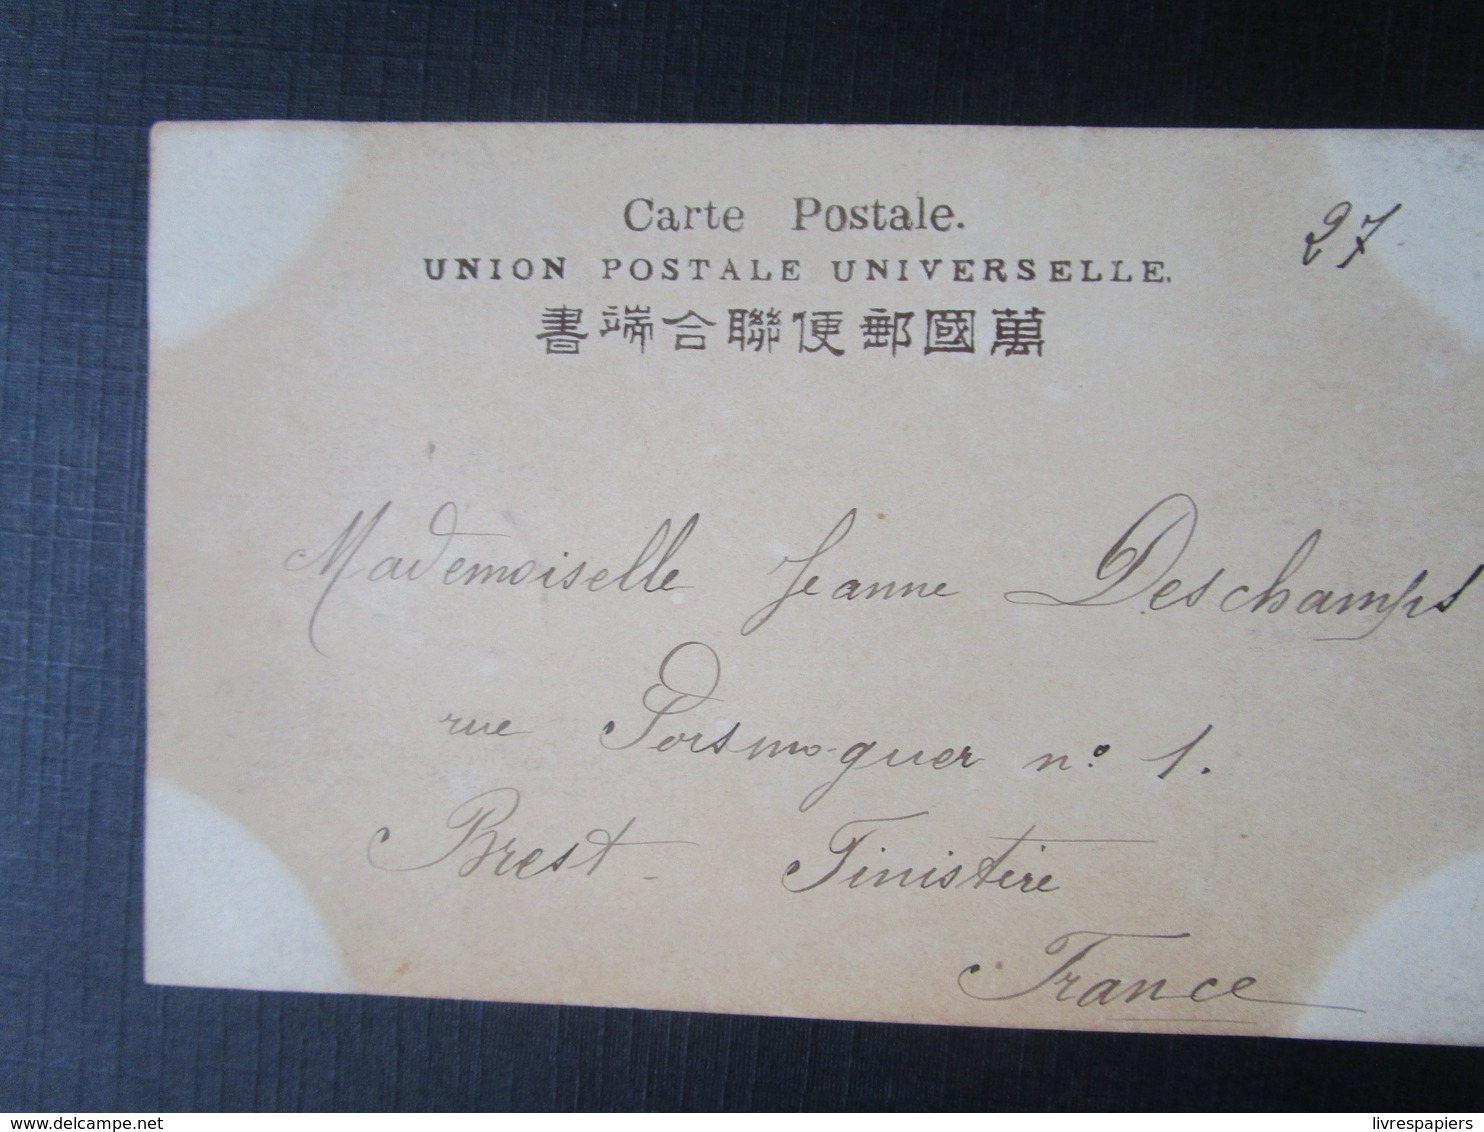 Carte Postale.
27
UNION POSTALE UNIVERSELLE.
書端合聯便郵國萬
Mademoiselle Jeanne Deschamps
rue Porsmoguer n° 1.
Brest - Finistère
France
www.delcampe.net
livrespapiers